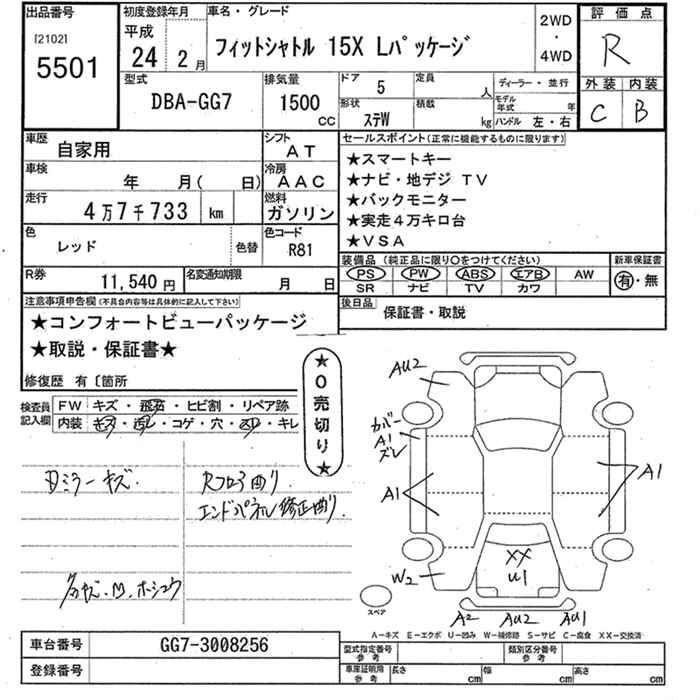 出品番号
[2102]
5501
初度登録年月
平成
24年2月
車名・グレード
フィットシャトル 15X Lパッケージ
2WD
・
4WD
評価点
R
外装 内装
C B
型式
DBA-GG7
排気量
1500
cc
ドア
5
定員
人
形状
ステW
積載
kg
ディーラー・並行
モデル年式 年
ハンドル 左・右
車歴
自家用
シフト
AT
車検
年 月( 日)
冷房
AAC
走行
4万7千733 km
燃料
ガソリン
色
レッド
色替
色コード
R81
R券
11,540 円
名変通知期限
月 日
セールスポイント(正常に機能するものに限ります)
★スマートキー
★ナビ・地デジTV
★バックモニター
★実走4万キロ台
★VSA
装備品(純正品に限り○をつけてください)
PS PW ABS エアB AW
SR ナビ TV カワ
新車保証書
有・無
後日品
保証書・取説
注意事項申告欄(不具合内容等は具体的に記入して下さい)
★コンフォートビューパッケージ
★取説・保証書★
修復歴 有〔箇所
★0売切り★
検査員記入欄
FW キズ・飛石・ヒビ割・リペア跡
内装 キズ・汚レ・コゲ・穴・スレ・キレ
ミラーキズ
曲り
エンドパネル修正曲り
AU2
カバー
A1
ズレ
A1
A1
W2
XX
U1
A2 AU2 AU1
スペア
A-キズ E-エクボ U-凹み W-補修跡 S-サビ C-腐食 XX-交換済
車台番号
GG7-3008256
登録番号
型式指定番号
参考
類別区分番号
参考
車庫証明用
参考
長さ cm
幅 cm
高さ cm